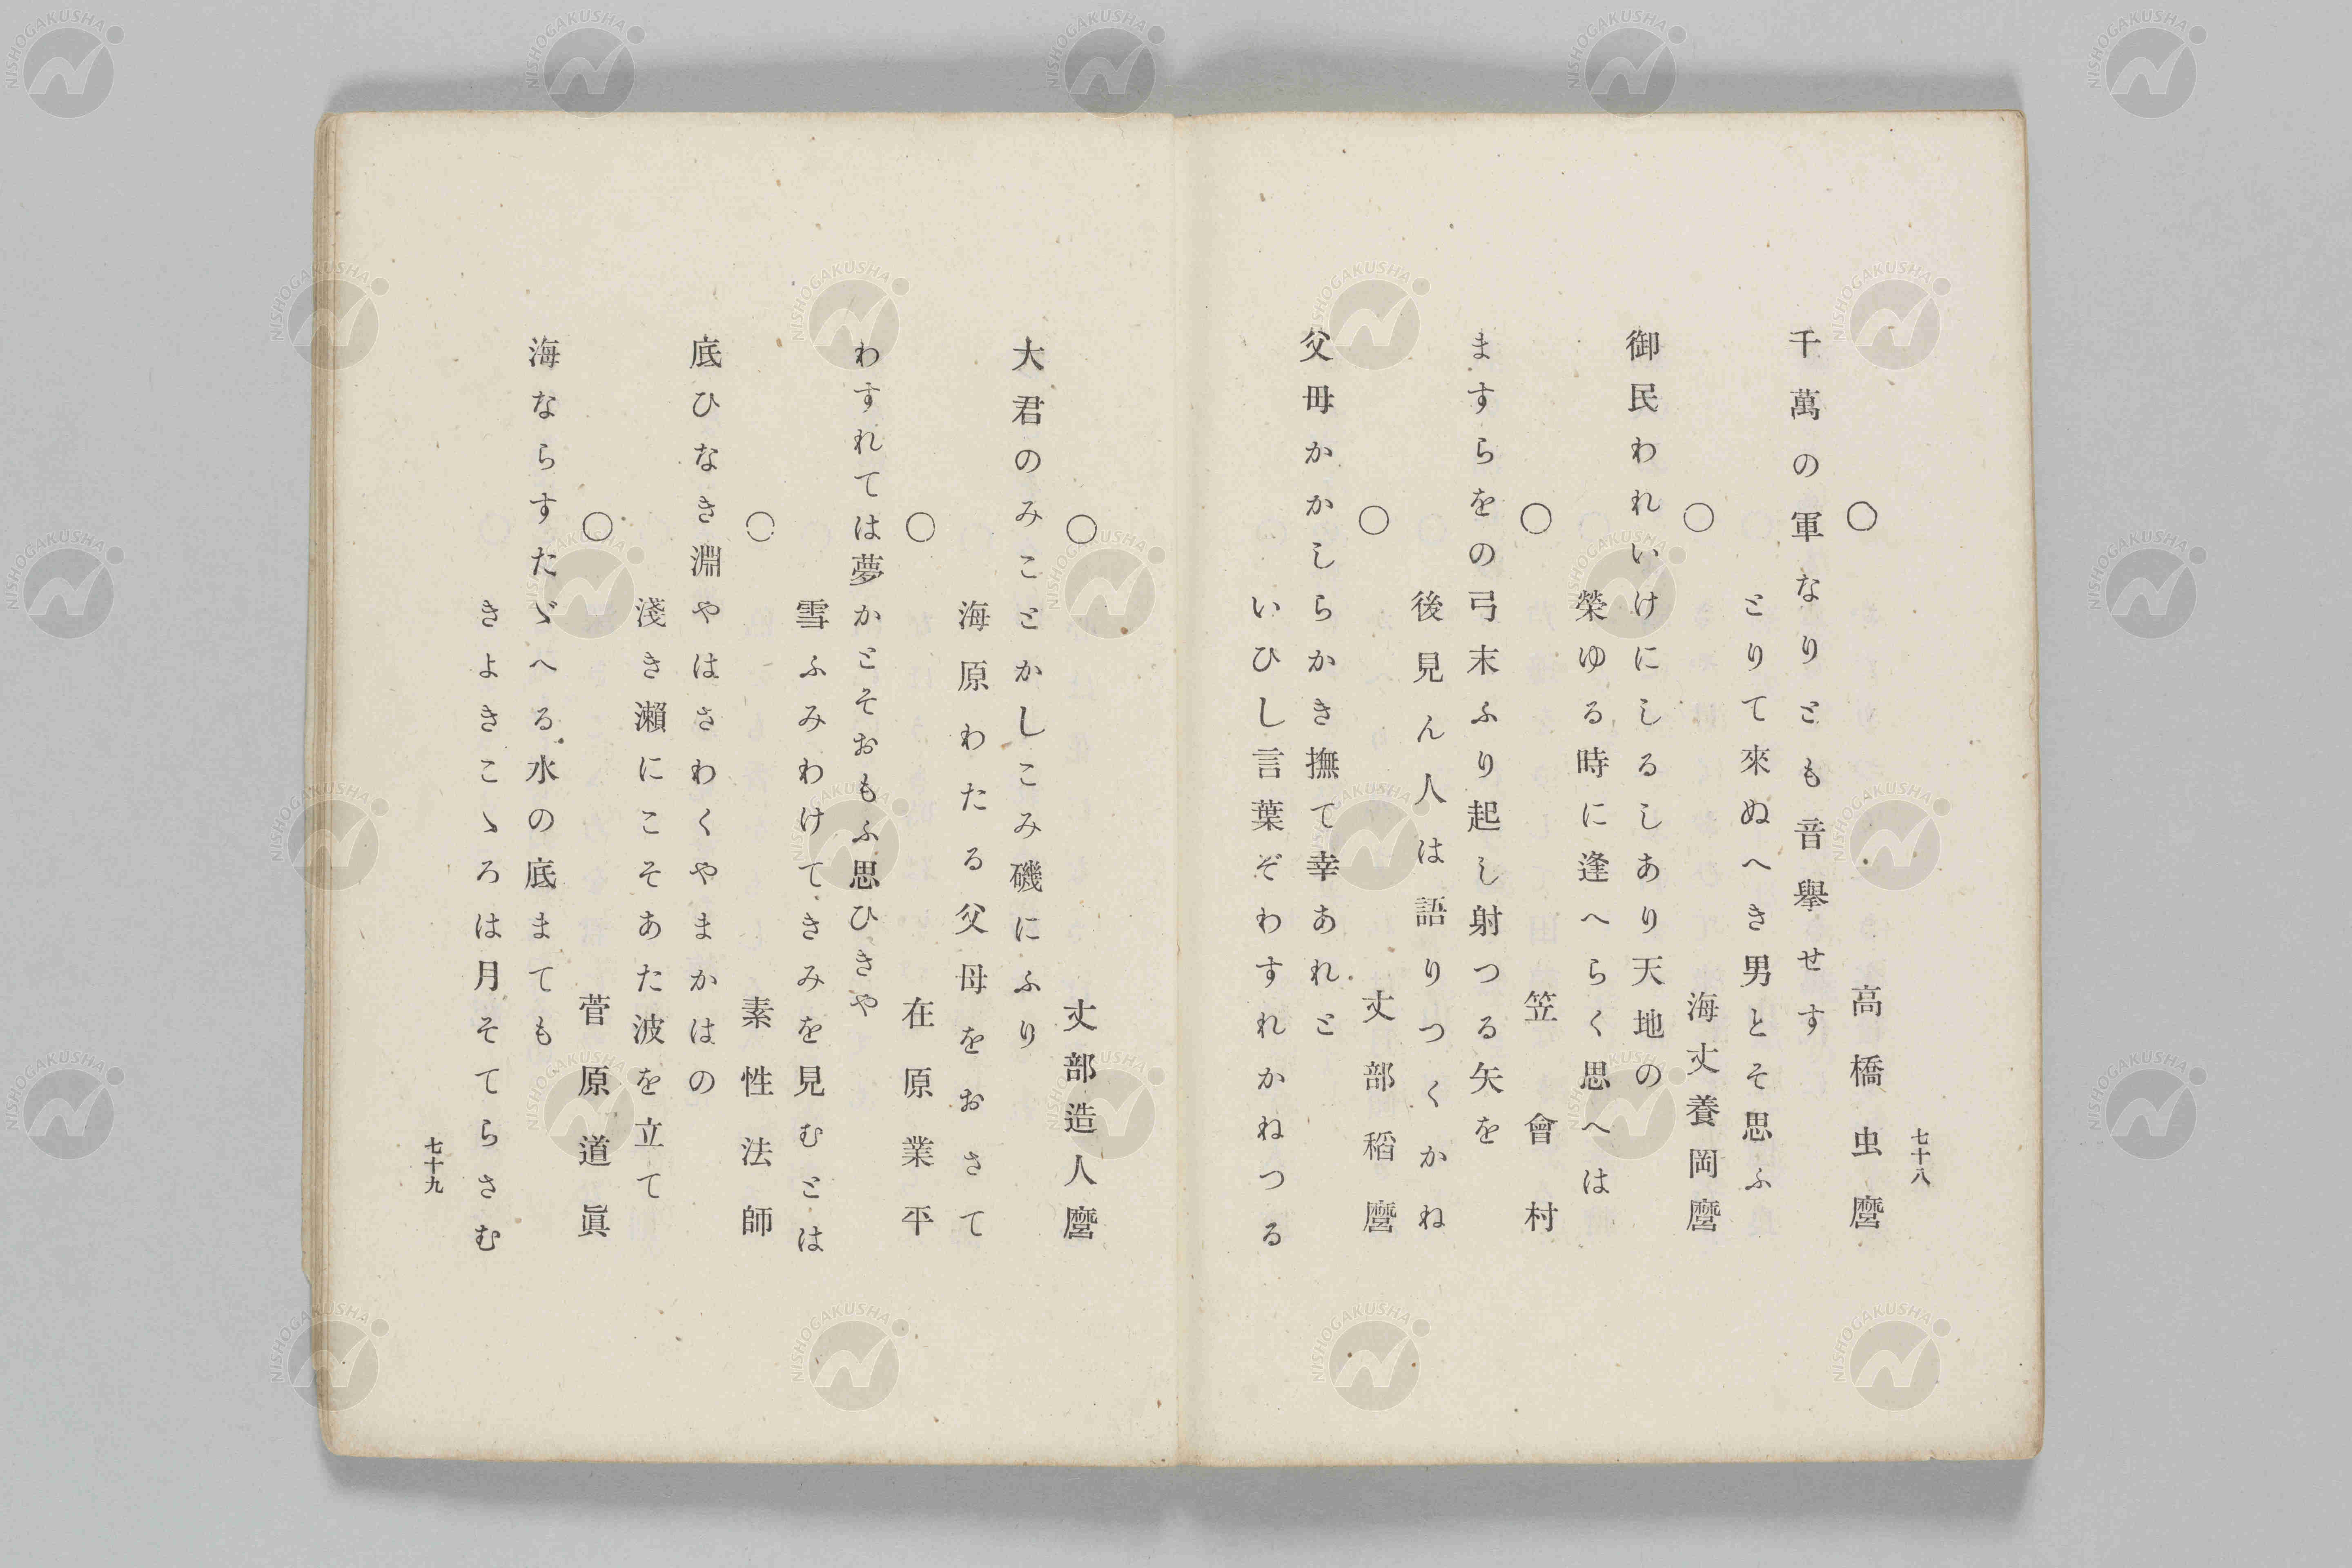 七十八
○ 高橋虫麿
千萬の軍なりとも音擧せす
とりて來ぬへき男とそ思ふ
○ 海丈養岡麿
御民われいけにしるしあり天地の
榮ゆる時に逢へらく思へは
○ 笠會村
ますらをの弓末ふり起し射つる矢を
後見ん人は語りつくかね
○ 丈部稻麿
父母かかしらかき撫て幸あれと
いひし言葉ぞわすれかねつる
○ 丈部造人麿
大君のみことかしこみ磯にふり
海原わたる父母をおさて
○ 在原業平
わすれては夢かとそおもふ思ひきや
雪ふみわけてきみを見むとは
○ 素性法師
底ひなき淵やはさわくやまかはの
淺き瀬にこそあた波を立て
○ 菅原道眞
海ならすたゞへる水の底まても
きよきこゝろは月そてらさむ
七十九
NISHOGAKUSHA